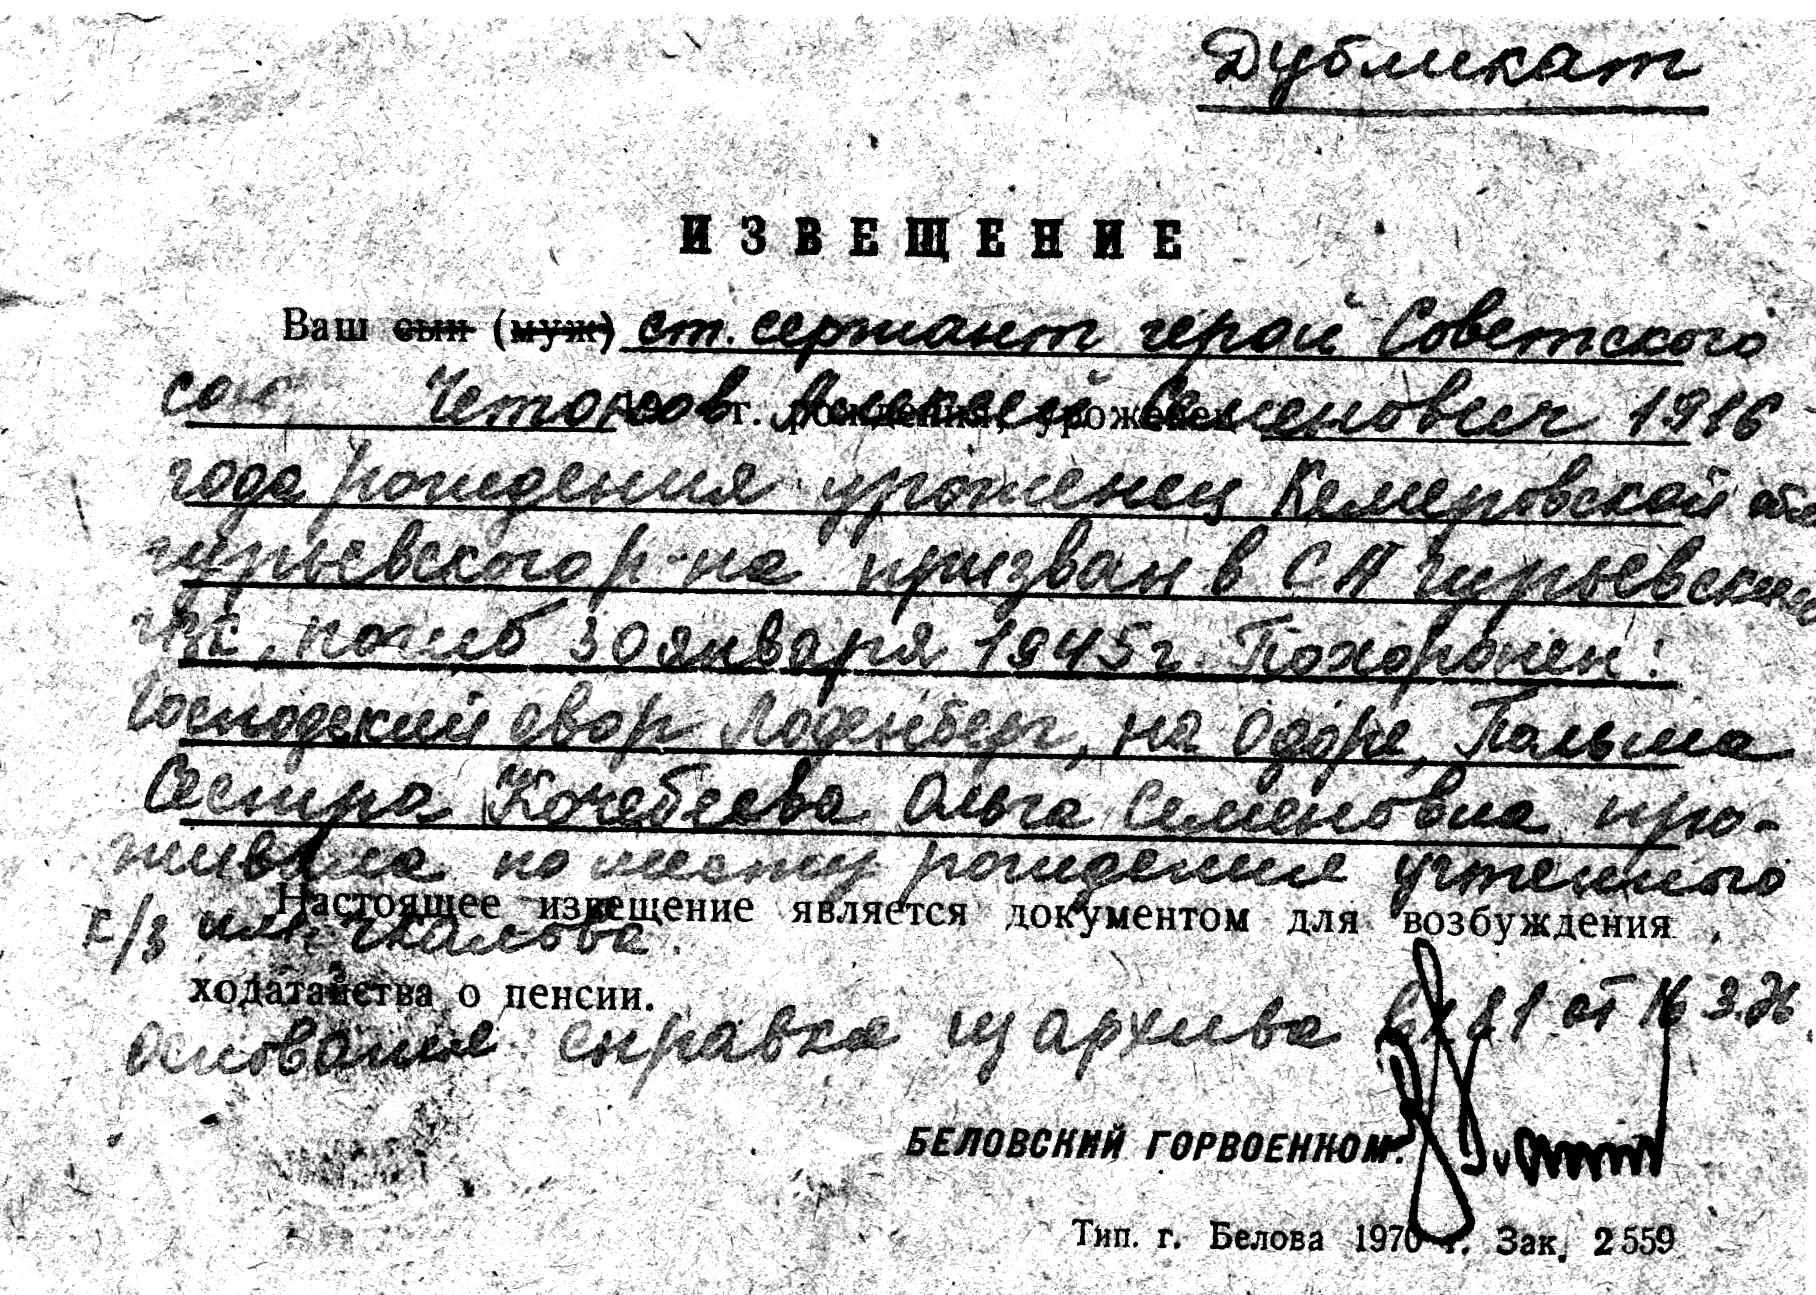 Дубликат
ИЗВЕЩЕНИЕ
Ваш сын (муж) ст. сержант герой Советского
сою Четонов Алексей Семенович 1916
19 г. рождения, уроженец
года рождения уроженец Кемеровской обл
гурьевского р-на призван в СА Гурьевским
погиб 30 января 1945 г. Похоронен:
Господский двор Лоденберг, на Одре, Пальма
Сестра Кочебеева Ольга Семеновна про-
живала по месту рождения учтенного
к/з им Чкалова.
Настоящее извещение является документом для возбуждения
ходатайства о пенсии.
Основание: справка из архива от 16 3.76
БЕЛОВСКИЙ ГОРВОЕНКОМ:
Тип. г. Белова 1970 г. Зак. 2559